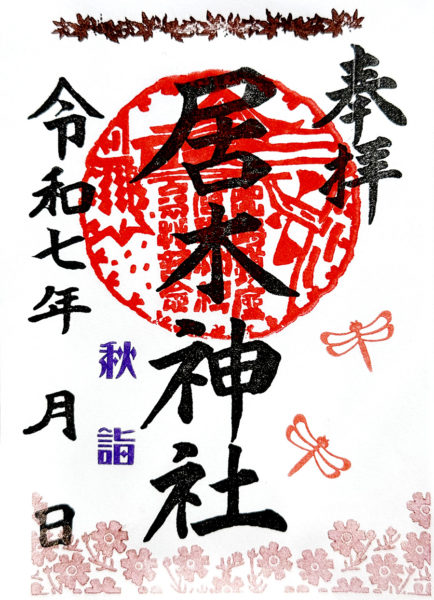 奉拝
居木神社
令和七年 月 日
秋詣